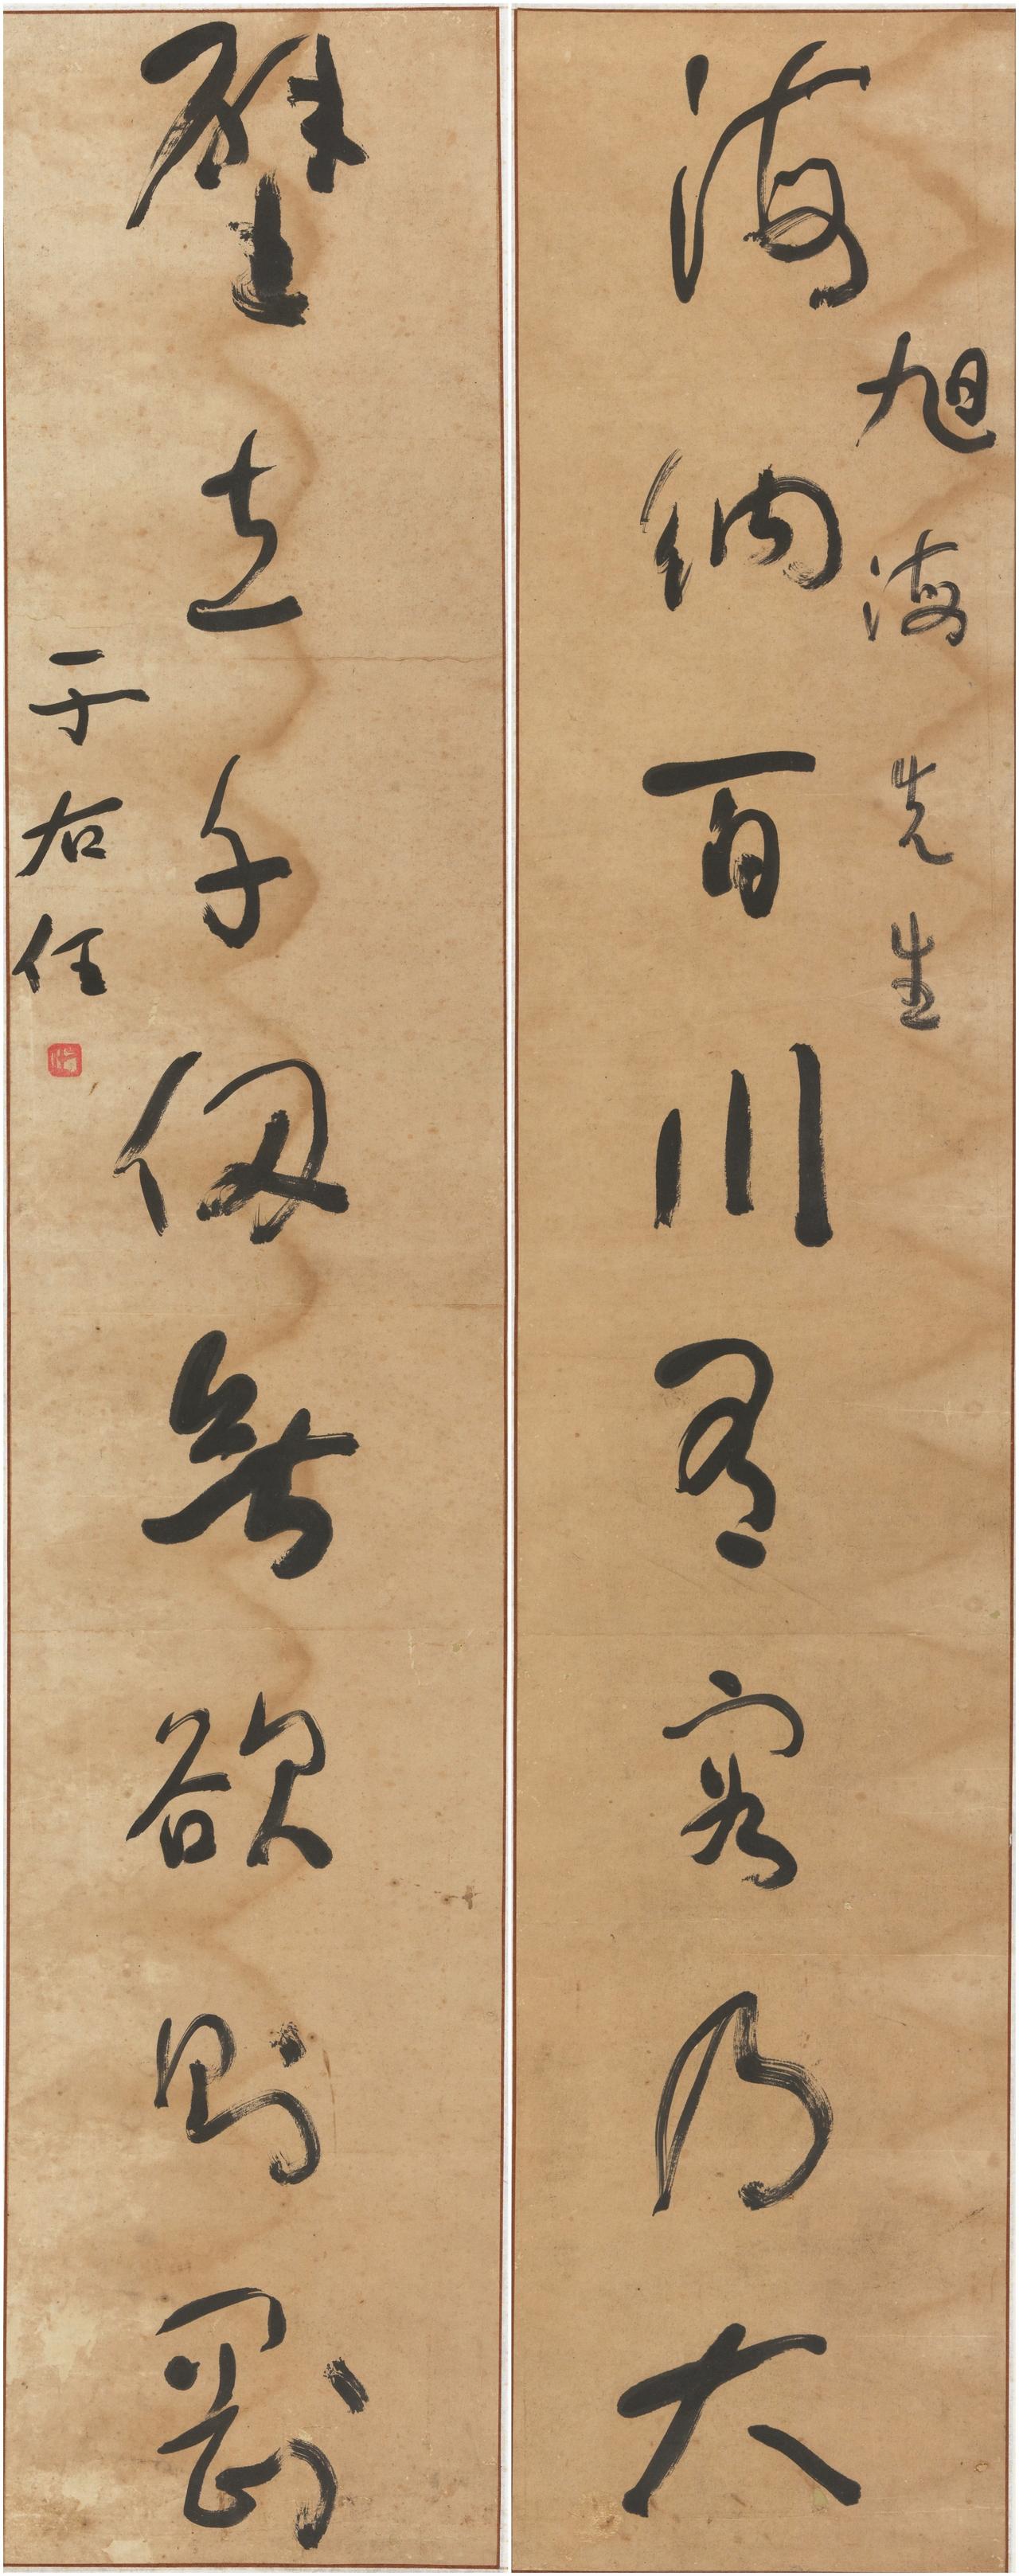 海納百川有容乃大
旭海先生
壁立千仞無欲則剛
于右任